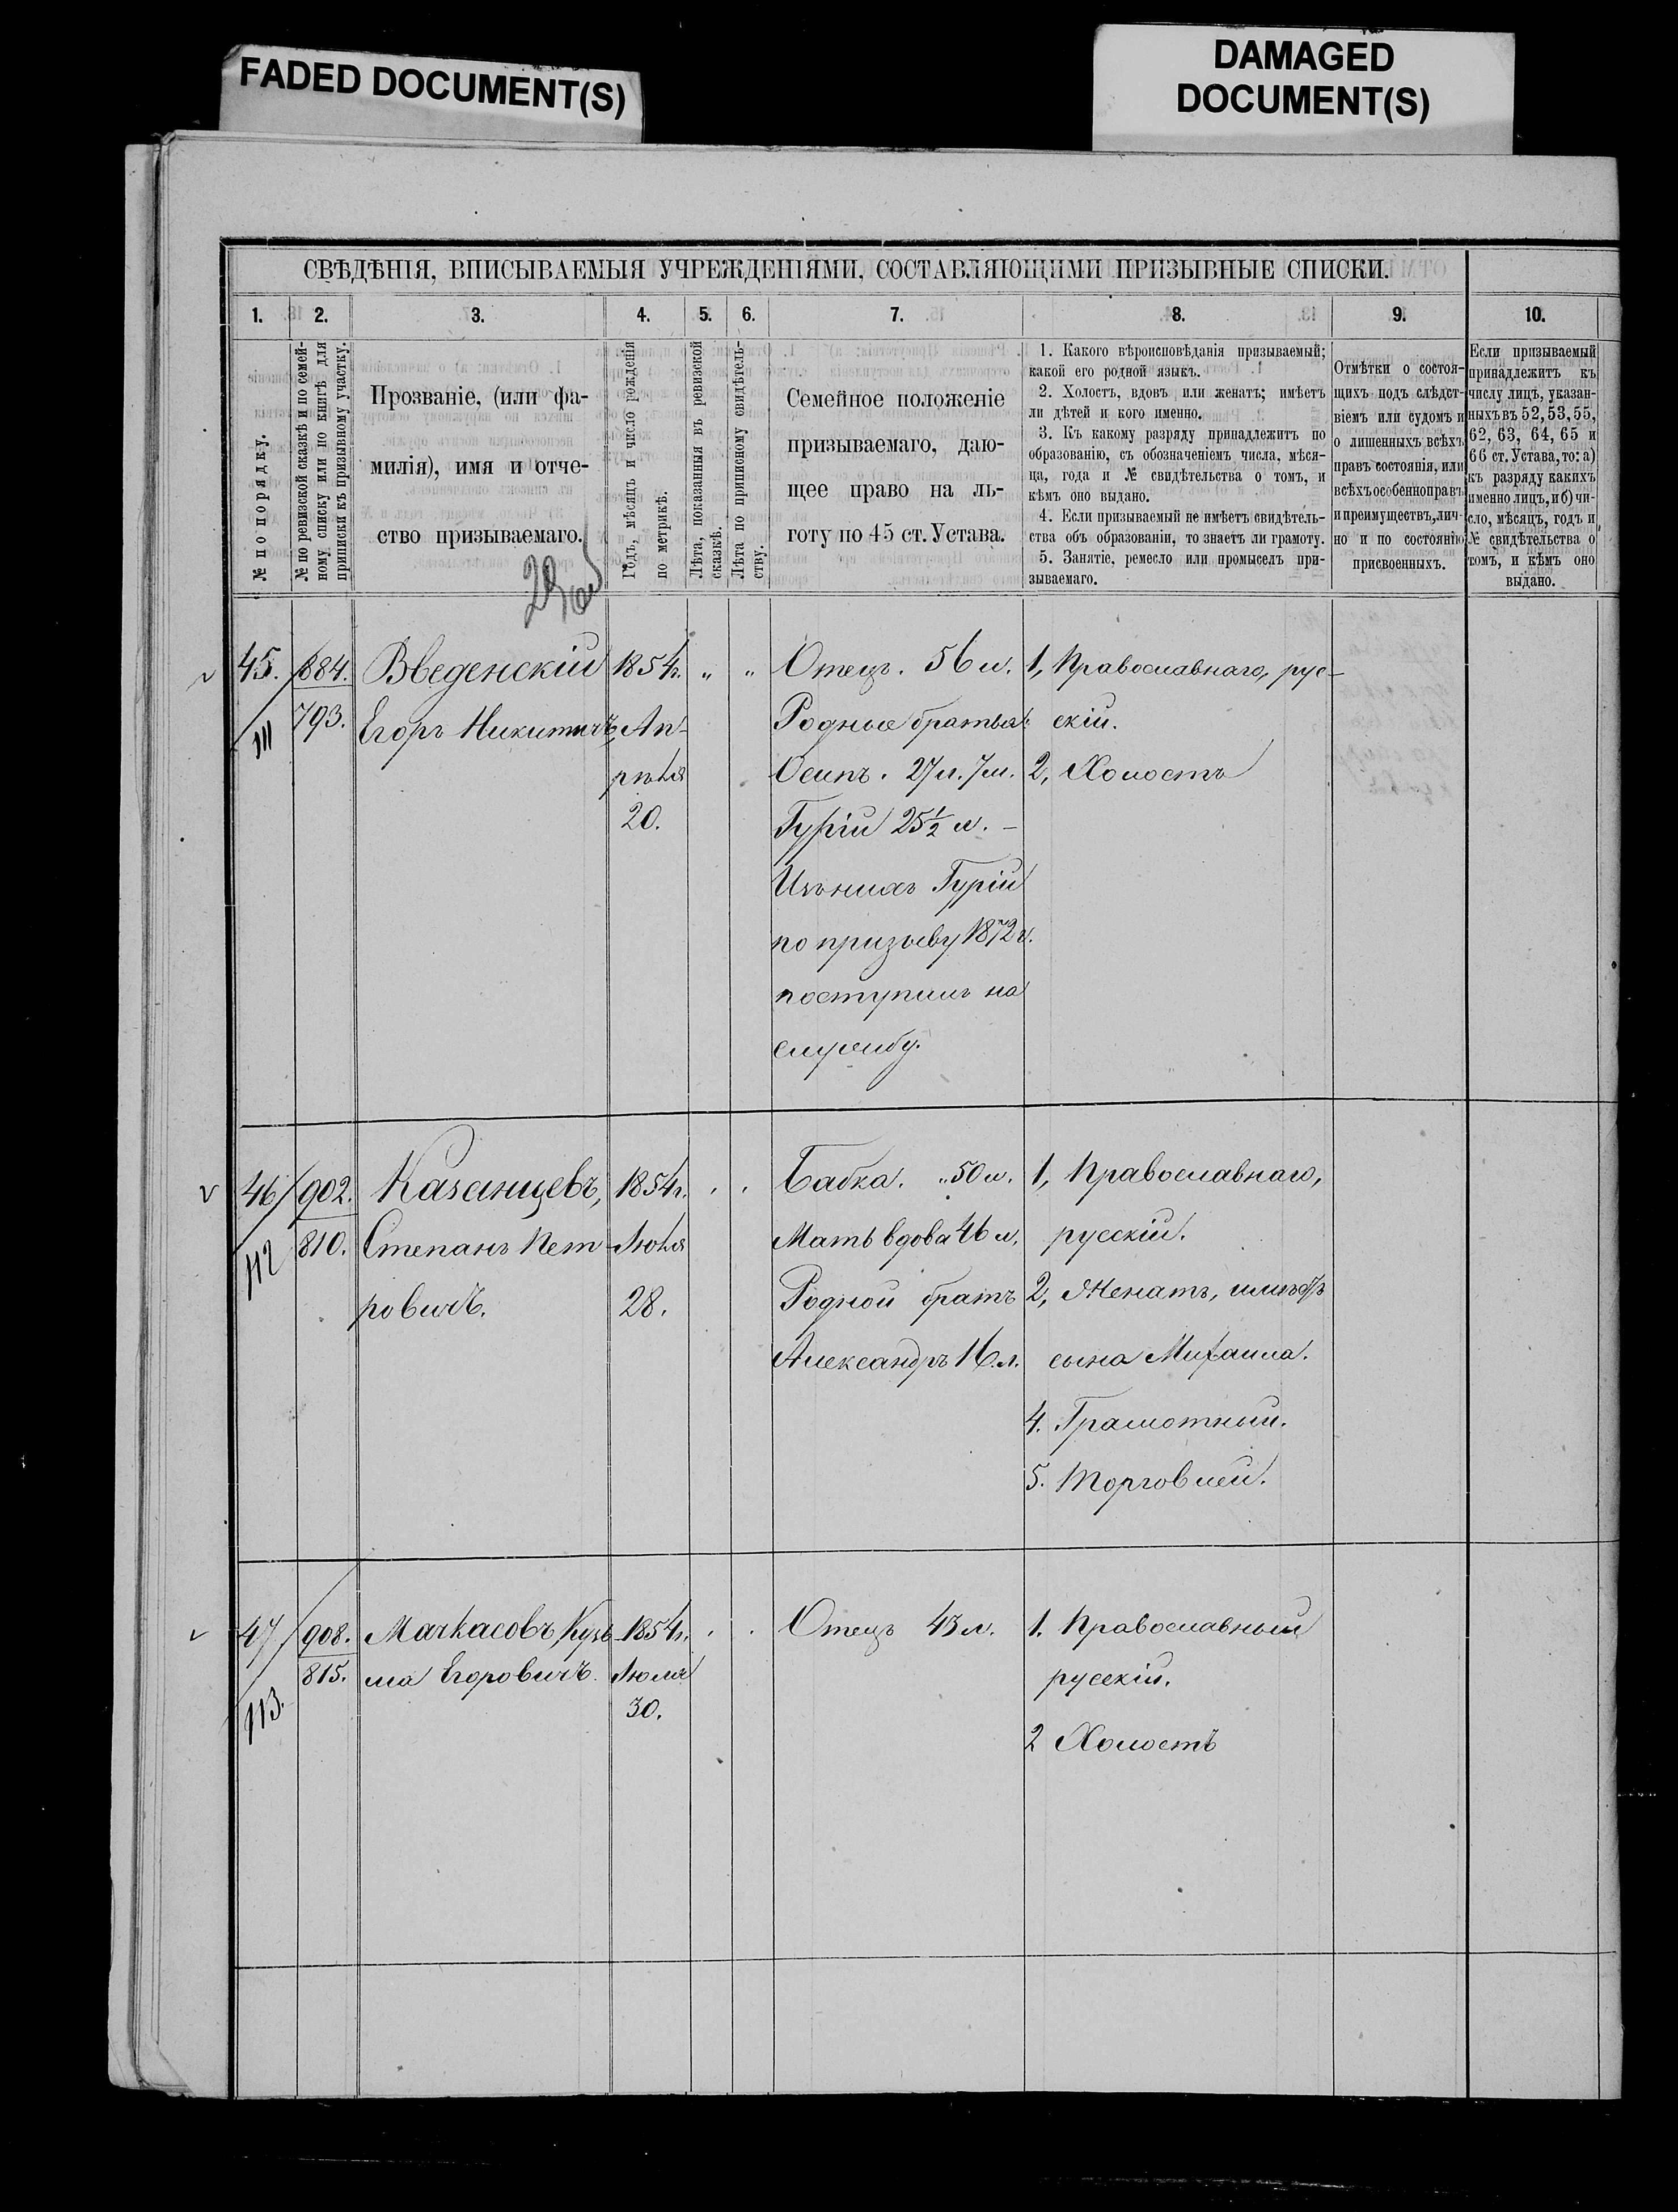 FADED DOCUMENT(S)
DAMAGED
DOCUMENT(S)
СВѢДѢНІЯ, ВПИСЫВАЕМЫЯ УЧРЕЖДЕНІЯМИ, СОСТАВЛЯЮЩИМИ ПРИЗЫВНЫЕ СПИСКИ.
1. 2. 3. 4. 5. 6. 7. 8. 9. 10.
№ по порядку.
№ по ревизской сказкѣ и по семей-
ному списку или по книгѣ для
приписки къ призывному участку.
Прозваніе, (или фа-
милія), имя и отче-
ство призываемаго.
Годъ, мѣсяцъ и число рожденія
по метрикѣ.
Лѣта, показанныя въ ревизской
сказкѣ.
Лѣта по приписному свидѣтель-
ству.
Семейное положеніе
призываемаго, даю-
щее право на ль-
готу по 45 ст. Устава.
1. Какого вѣроисповѣданія призываемый;
какой его родной языкъ.
2. Холостъ, вдовъ или женатъ; имѣетъ
ли дѣтей и кого именно.
3. Къ какому разряду принадлежитъ по
образованію, съ обозначеніемъ числа, мѣся-
ца, года и № свидѣтельства о томъ, и
кѣмъ оно выдано.
4. Если призываемый не имѣетъ свидѣтель-
ства объ образованіи, то знаетъ ли грамоту.
5. Занятіе, ремесло или промыселъ при-
зываемаго.
Отмѣтки о состоя-
щихъ подъ слѣдст-
віемъ или судомъ и
о лишенныхъ всѣхъ
правъ состоянія, или
всѣхъ особенно правъ
и преимуществъ, лич-
но и по состоянію
присвоенныхъ.
Если призываемый
принадлежитъ къ
числу лицъ, указан-
ныхъ въ 52, 53, 55,
62, 63, 64, 65 и
66 ст. Устава, то: а)
къ разряду какихъ
именно лицъ, и б) чи-
сло, мѣсяцъ, годъ и
№ свидѣтельства о
томъ, и кѣмъ оно
выдано.
45. 884. Введенскій 1854г. „ „ Отецъ. 56 л. 1, Православнаго, рус-
111 793. Егоръ Никитичъ, Ап- Родные братья: скій.
рѣля Осипъ. 27 л. 7 м. 2, Холостъ
20. Гурій 25½ л. –
Изъ нихъ Гурій
по призыву 1872 г.
поступилъ на
службу.
46 902. Казанцевъ, 1854г. Бабка. „50 л. 1, Православнаго,
112 810. Степанъ Пет- Іюля Мать вдова 46 л. русскій.
ровичъ. 28. Родной братъ 2, Женатъ, имѣетъ
Александръ 16 л. сына Михаила.
4. Грамотный.
5. Торговлей.
47 908. Мачкасовъ Кузь- 1854г. Отецъ 43 л. 1. Православный
113. 815. ма Егоровичъ. Іюля русскій.
30.
2 Холостъ